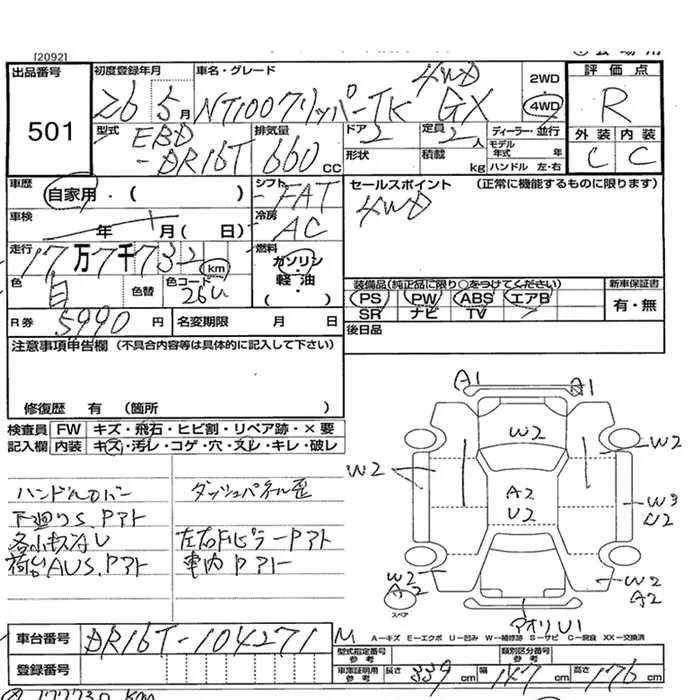 [2092]
出品番号 初度登録年月 車名・グレード 4WD 2WD 評価点
501 26 5月 NT100クリッパーTK GX 4WD R
型式 EBD-DR16T 排気量 660 CC ドア 2 定員 2人 ディーラー・並行 外装 内装
形状 積載 kg モデル年式 年 C C
ハンドル 左・右
車歴 自家用・( ) シフト FAT セールスポイント (正常に機能するものに限ります)
車検 年 月( 日) 冷房 AC 4WD
走行 17万7千732 km 燃料 ガソリン・軽油・( )
色 白 色替 色コード 26U
装備品(純正品に限り○をつけてください) 新車保証書
PS PW ABS エアB 有・無
SR ナビ TV
R券 5990円 名変期限 月 日 後日品
注意事項申告欄 (不具合内容等は具体的に記入して下さい)
修復歴 有 (箇所 )
検査員 FW キズ・飛石・ヒビ割・リペア跡・×要
記入欄 内装 キズ・汚レ・コゲ・穴・スレ・キレ・破レ
A1 A1
W2
W2 W2
A2 U2
W3 U2
W2 A2
W2 A2
スペア
アオリU1
ハンドルカバー ダッシュパネル歪
下廻りS.Pアト
各小キズAU 左右Fピラーアト
荷台AUS.Pアト 車内Pアト
A-キズ E-エクボ U-凹み W-補修跡 S-サビ C-腐食 XX-交換済
車台番号 DR16T-104271 M
登録番号
型式指定番号 参考 類別区分番号 参考
車庫証明用 参考 長さ 339 cm 幅 147 cm 高さ 176 cm
177730 Km